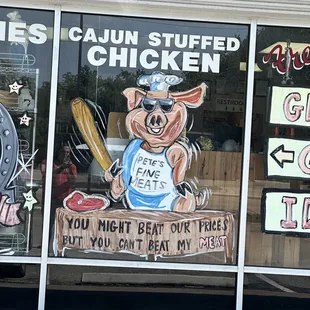 IES
CAJUN STUFFED
CHICKEN
PETE'S
FINE
MEATS
YOU MIGHT BEAT OUR PRICES
BUT YOU CAN'T BEAT MY MEAT